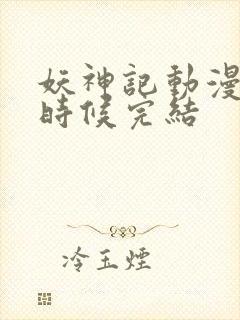 妖神記動漫
時候完結
冷玉煙